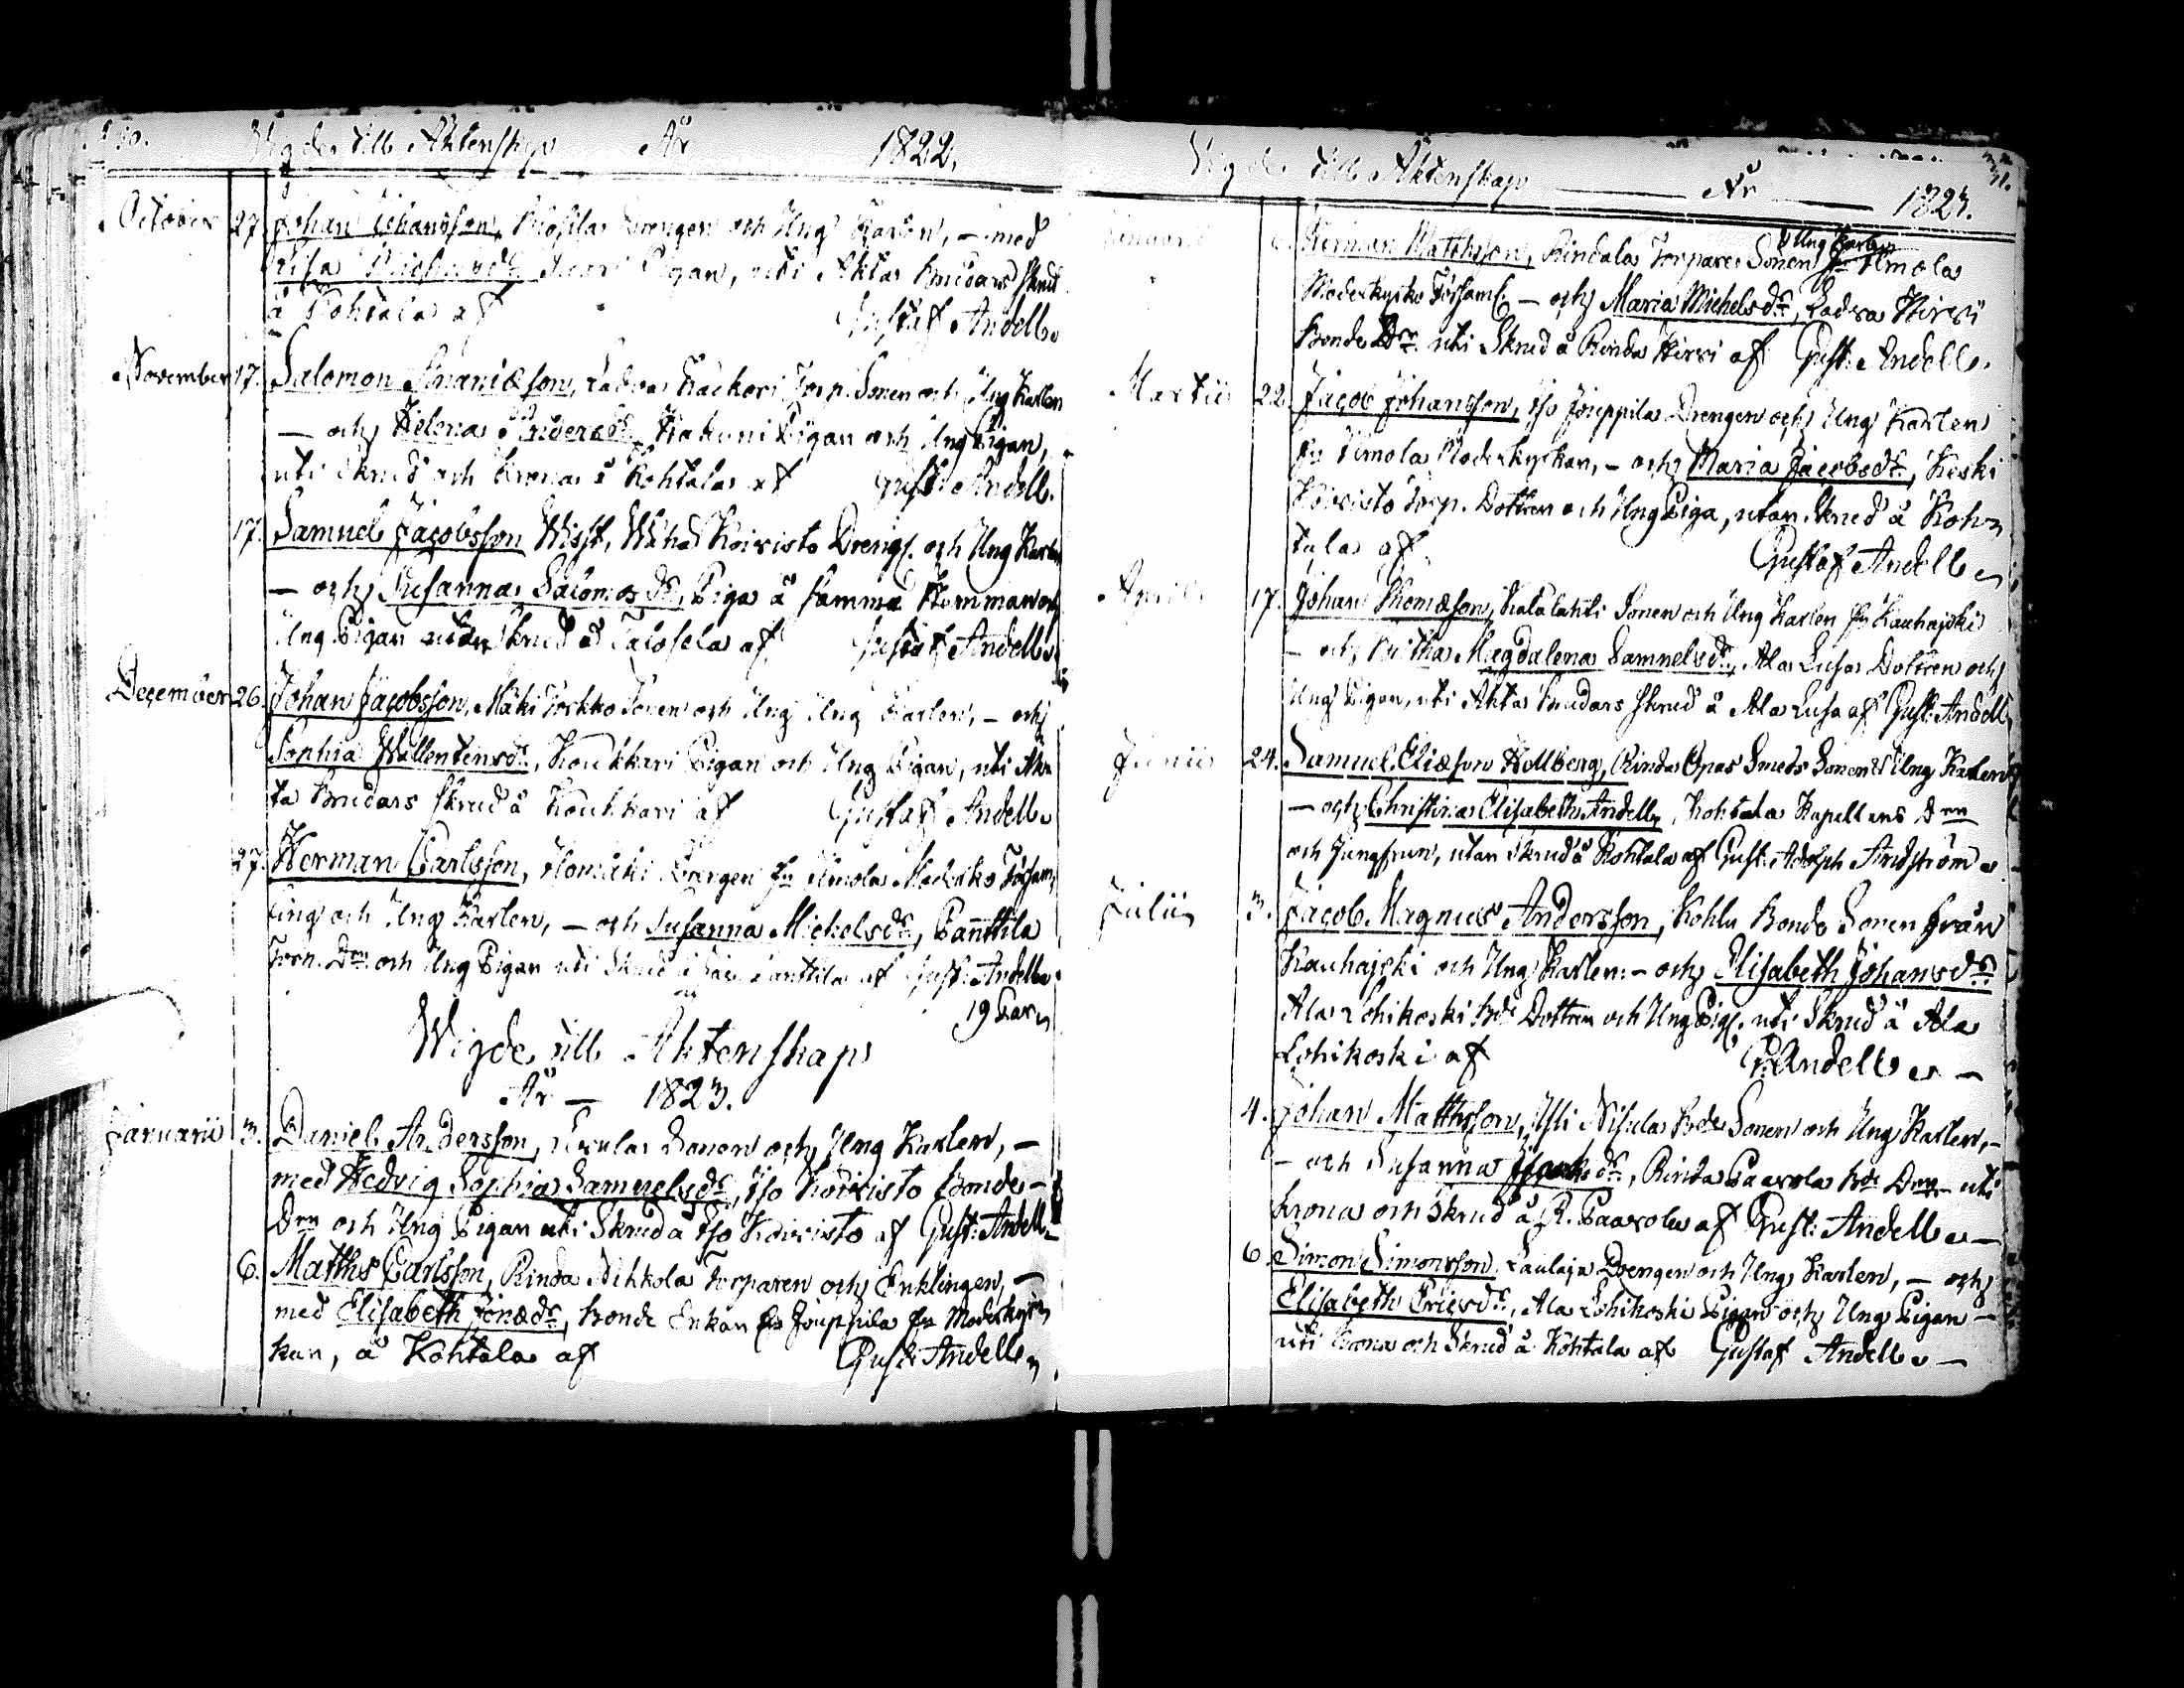 Wigde till Äktenskap År 1822.
October 27. Johan Johansson, Drengen och Ung Karlen, – med
Pigan, uti Äkta Brudars skrud
å Kohtala af Gustaf Andell.
November 17. Salomon Ananiæson, Torp. Sonen och Ung Karlen
– och Helena Andersdr. Pigan och Ung Pigan,
uti Skrud och Krona å Kohtala af Gust: Andell.
17. Samuel Jacobsson Wisst, Wähä Koivisto Dreng. och Ung Karlen
– och Susanna Salomosdr, Piga å samma Hemman och
Ung Pigan utan skrud å af Gustaf Andell
December 26. Johan Jacobsson, Mäki Torkko Sonen och Ung Ung Karlen, – och
Sophia Wallentinsdr, Koukkari Pigan och Ung Pigan, uti Äk=
ta Brudars skrud å Koukkari af Gustaf Andell
27. Herman Carlsson, Drengen fr Ilmola Församl
ing och Ung Karlen, – och Susanna Michelsdr, Panttila
Torp. Drn och Ung Pigan uti Skrud å Panttila af Gust: Andell.
19 Par
Wigde till Äktenskap
År – 1823.
Januarii 3. Daniel Andersson, Sonen och Ung Karlen, –
med Hedvig Sophia Samuelsdr, Iso Koivisto Bonde –
Drn och Ung Pigan uti Skrud å Iso Koivisto af Gust: Andell
6. Matths Carlsson, Rinda Torparen och Enklingen, –
med Elisabeth Jonædr, Bonde Enkan fr Jouppila fr Moderkyr=
kan, å Kohtala af Gust: Andell
Wigde till Äktenskap År 1823. 31.
Ung Karlen
Januarii 6. Herman Matthsson, Rindala Torpare Sonen fr Ilmola
Moderkyrko Församl. – och Maria Michelsdr, Hirvi
Bonde Dr. uti Skrud å Rinda Hirvi af Gust: Andell.
Martii 22. Jacob Johansson, Iso Jouppila Drengen och Ung Karlen
fr Ilmola Moderkyrkan, – och Maria Jacobsdr, Keski
Koivisto Torp. Dottren och Ung Piga, utan Skrud å Koh=
tala af Gustaf Andell
April 17. Johan Thomæson, Sonen och Ung Karlen fr Kauhajoki
– och Magdalena Samuelsdr, Ala Lusa Dottren och
Ung Pigan, uti Äkta Brudars skrud å Ala Lusa af Gust: Andell
Junii 24. Samuel Eliæson Hollberg, Rinda Opas Smeds Sonen Ung Karlen
– och Christina Elisabeth Andell, Kohtala Kapellans Drn
och Jungfrun, utan Skrud å Kohtala af Gust: Adolph Andström
Julii 3. Jacob Magnus Andersson, Kohlu Bonde Sonen från
Kauhajoki och Ung Karlen: – och Elisabeth Johansdr
Ala Lohikoski Bde Dottren och Ung Pig. uti Skrud å Ala
Lohikoski af G. Andell –
4. Johan Matthsson, Ysli Nisula Bde Sonen och Ung Karlen, –
– och Susanna Isaksdr, Rinda Paavola Bde Drn – uti
Krona och Skrud å R. Paavola af Gust: Andell –
6. Simon Simonsson, Laulaja Drengen och Ung Karlen, – och
Elisabeth Ericsdr, Ala Lohikoski Pigan och Ung Pigan –
uti Krona och Skrud å Kohtala af Gustaf Andell –